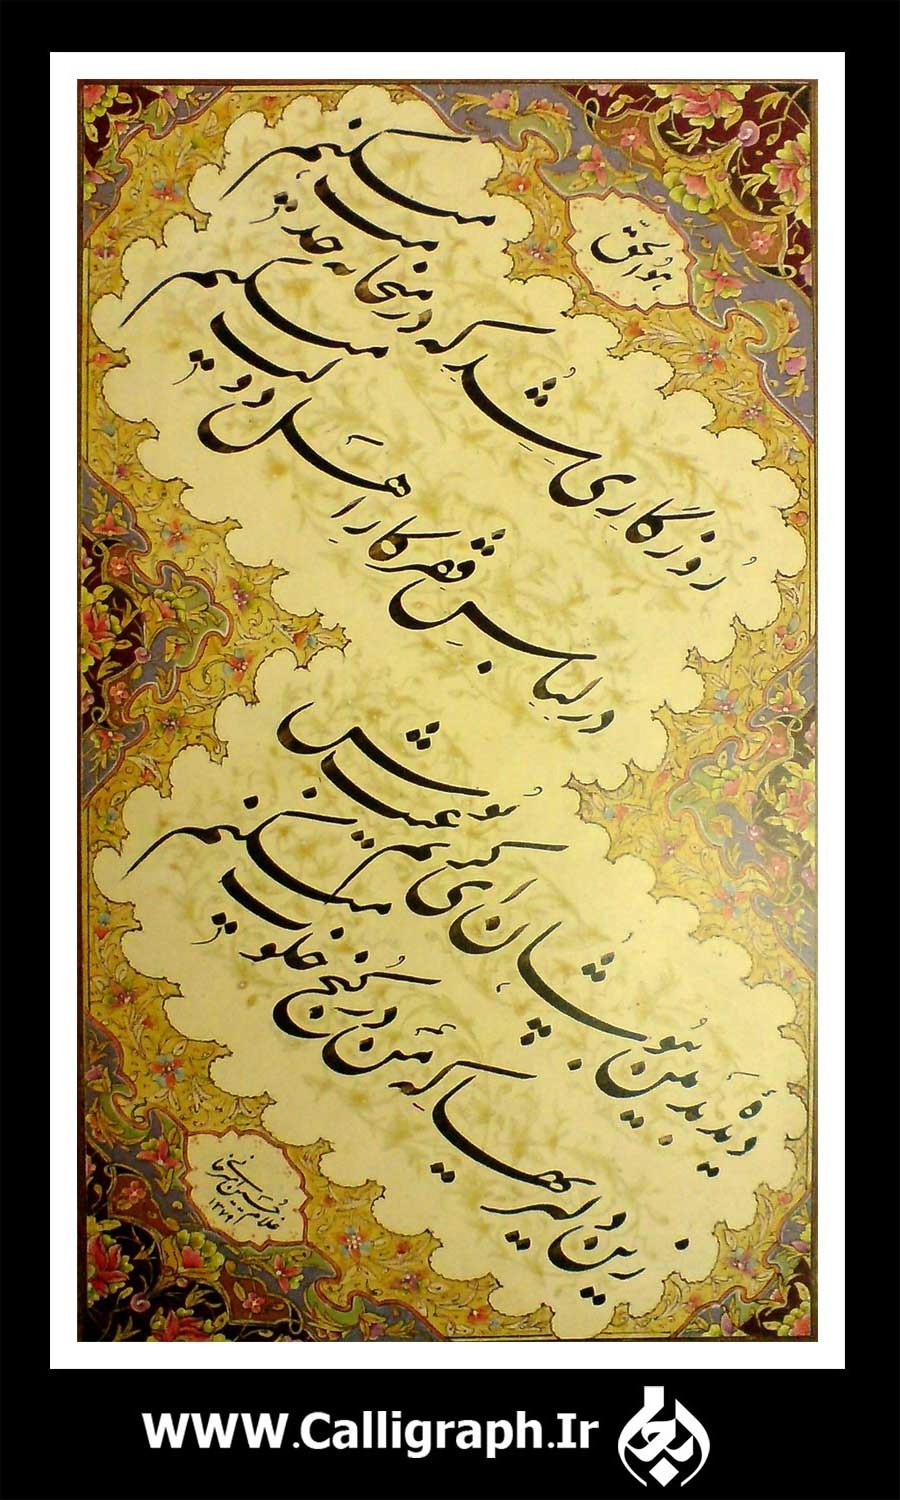 هوالحق
روزگاری شد که در میخانه خدمت میکنم
در لباس فقر کار اهل دولت میکنم
دیدهٔ بدبین بپوشان ای کریم عیب پوش
زین دلیریها که من در کنج خلوت میکنم
غلامحسین امیرخانی
۱۳۷۹
WWW.Calligraph.Ir